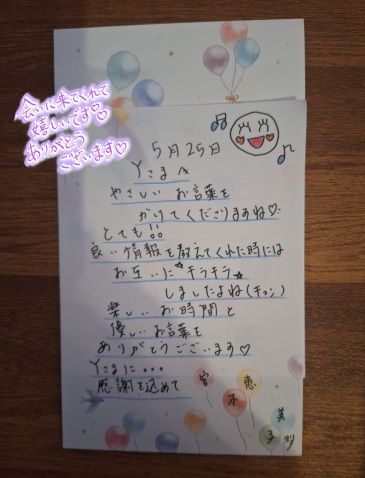 会いに来てくれて
嬉しいです♡
ありがとう
ございます♡
5月25日
Yさまへ
やさしい お言葉を
かけてくださりますね♡
とても!!
良い情報を教えてくれた時には
お互いに☆キラキラ☆
しましたよね(キュン)
楽しい お時間と
優しい お言葉を
ありがとうございます♡
Yさまに...
感謝を込めて
恵
美